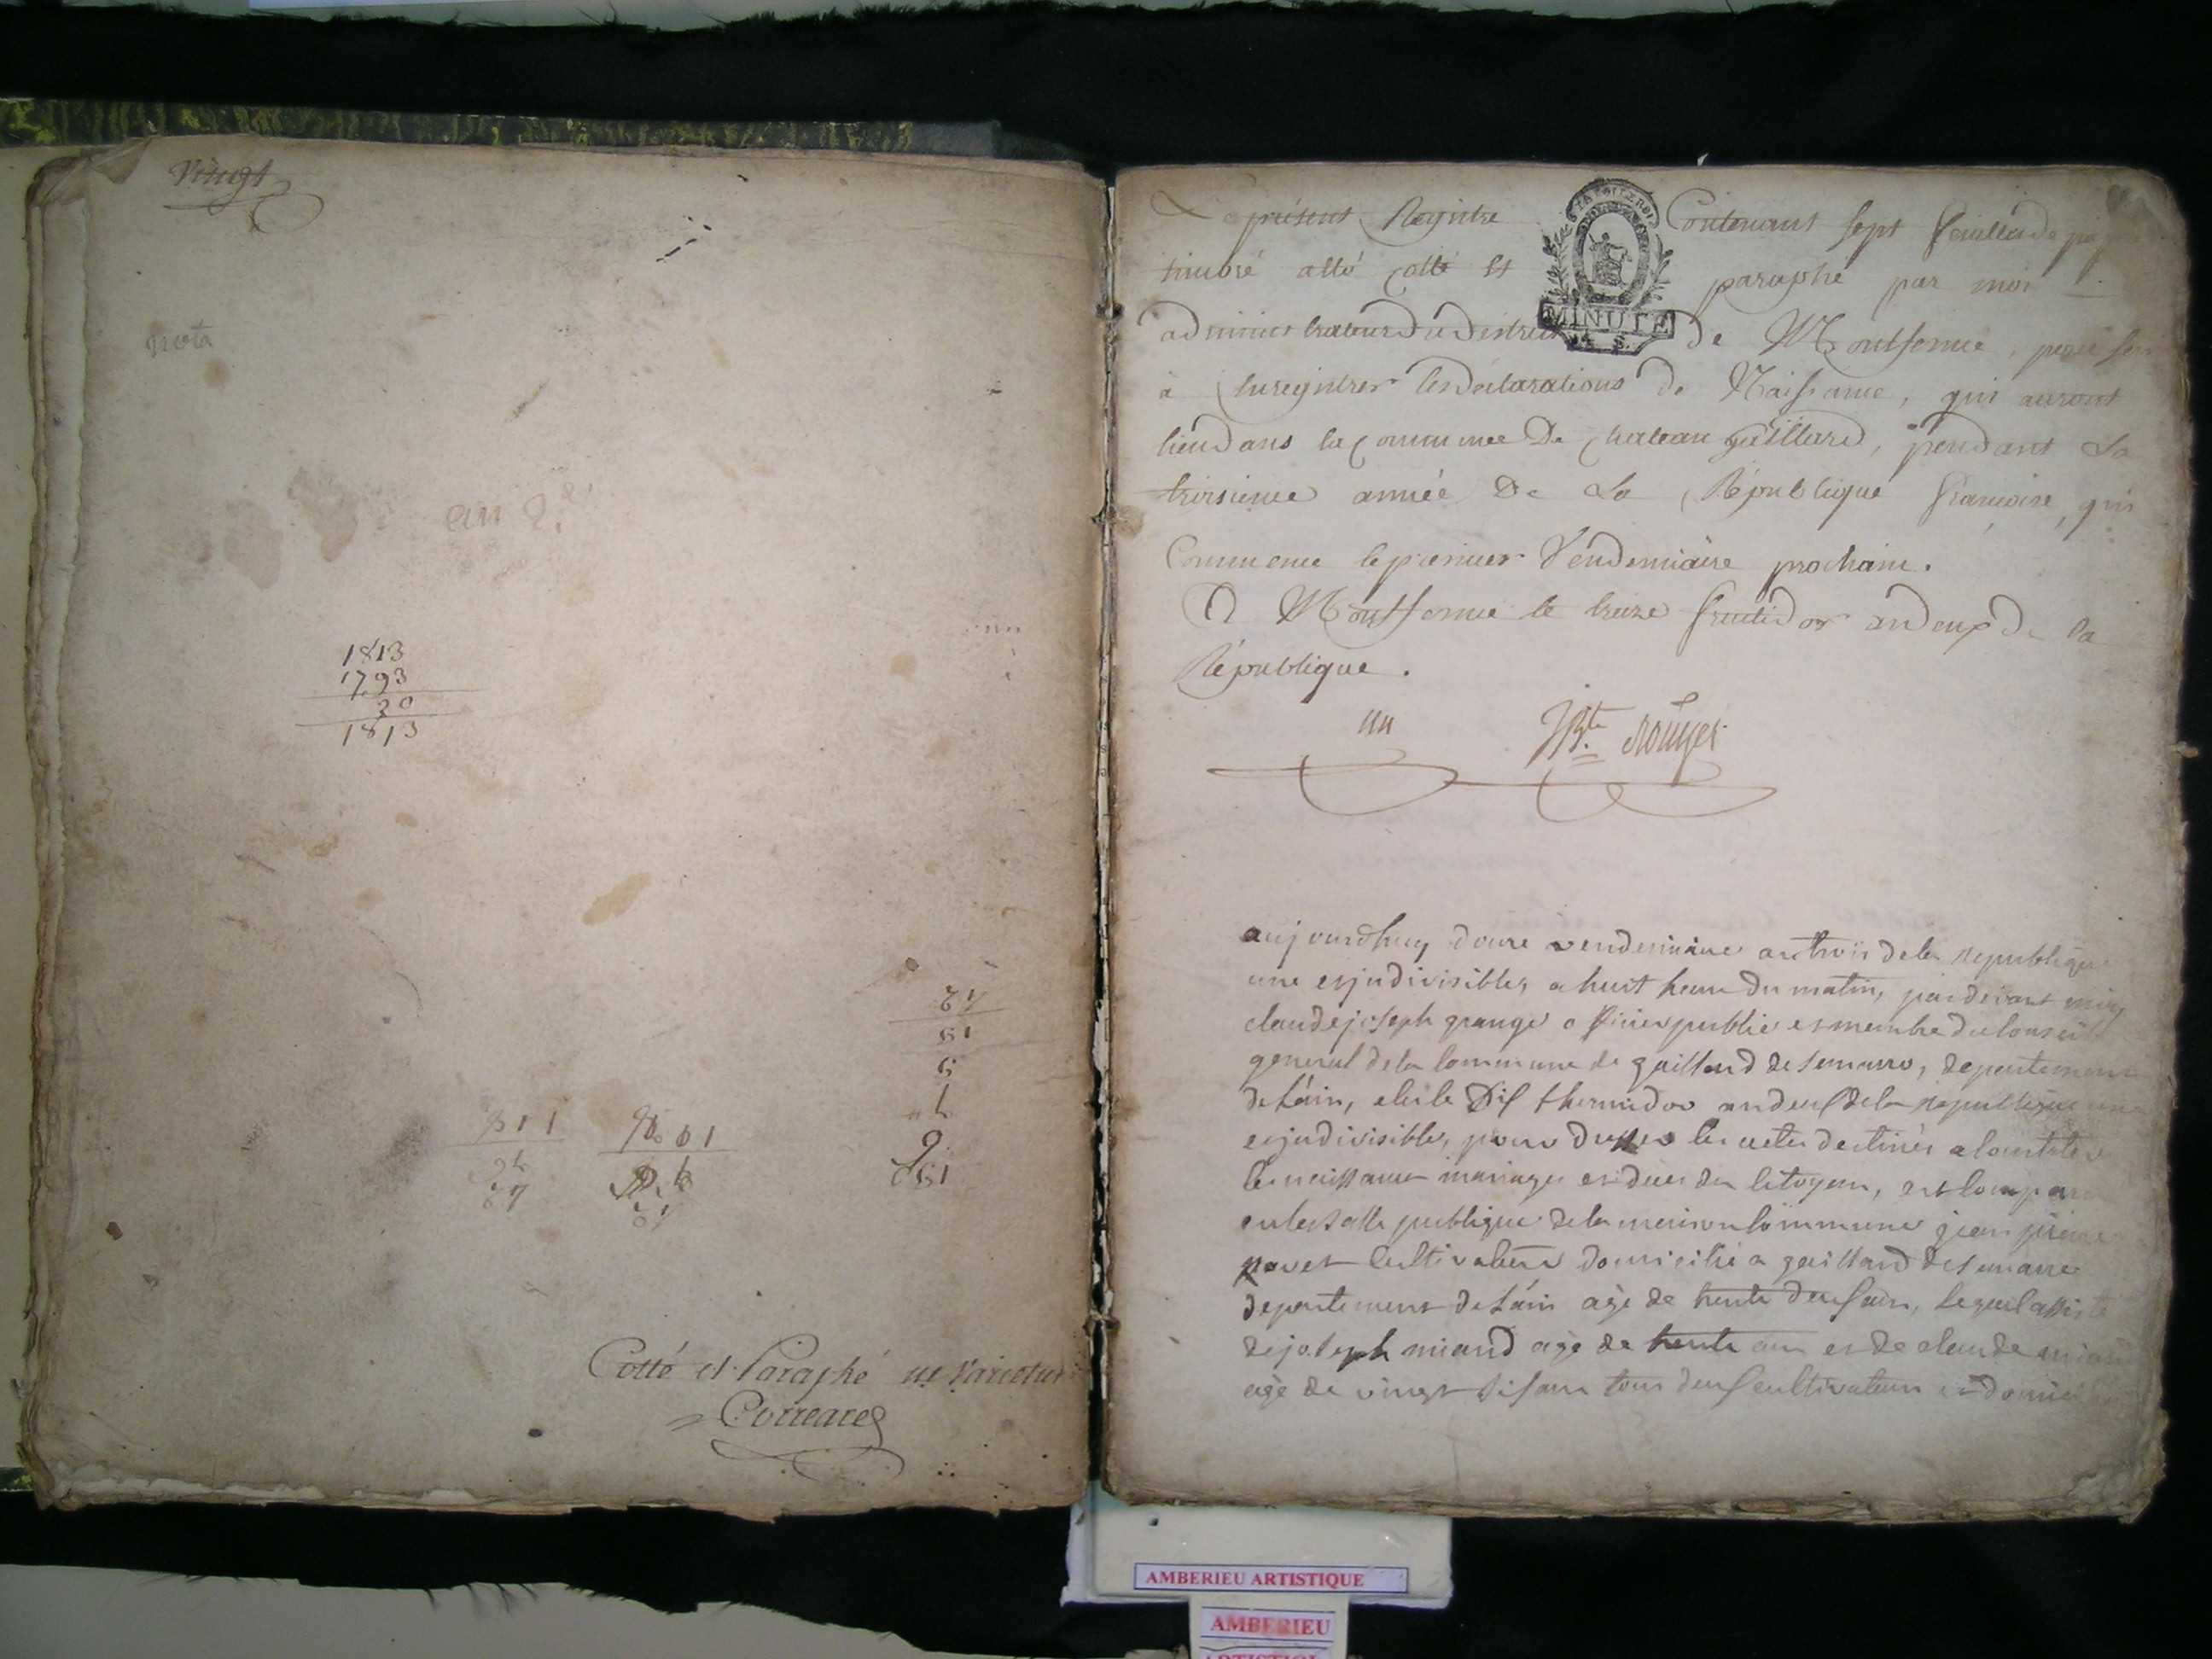 vingt
nota
an 2e
1813
1793
20
1813
Cotté et Paraphé ne varietur
Correard
Le présent Registre Contenant sept feuilles de
timbré a été cotté et paraphé par moi
administrateur du District de Montferme, pour
à Enregistrer les déclarations de Naissance, qui auront
lieu dans la Commune De chateau gaillard, pendant La
troisieme année De La République francoise, qui
Commence le premier Vendemiaire prochain.
A Montferme le treize fructidor an deux de la
République.
un JBte Rouyer
MINUTE
aujourdhuy douze vendemiaire an trois de la republique
une et indivisible, a huit heure du matin, par devant moy
claude joseph grange officier public et membre du conseil
general de la commune de gaillard de semarre, departement
de Lain, elu le Dix thermidor an deux de la republique une
et indivisible, pour dresser les actes destinés a constater
les naissances mariages et deces des citoyens, est comparu
en la salle publique de la maison commune jean pierre
cultivateur domicilié a gaillard de semarre
departement de Lain agé de trente deux ans, lequel assisté
de joseph miand agé de trente ans et de claude
agé de vingt six ans tous deux cultivateurs et
AMBERIEU ARTISTIQUE
AMBERIEU
ARTISTIQUE